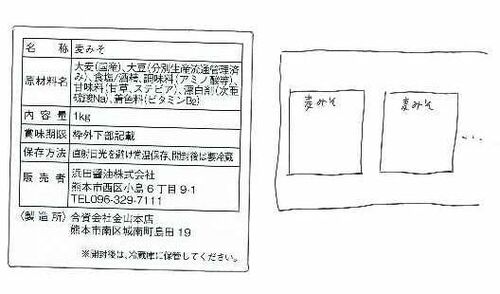 名　称 麦みそ
原材料名 大麦(国産)、大豆(分別生産流通管理済
み)、食塩/酒精、調味料(アミノ酸等)、
甘味料(甘草、ステビア)、漂白剤(次亜
硫酸Na)、着色料(ビタミンB2)
内容量 1kg
賞味期限 枠外下部記載
保存方法 直射日光を避け常温保存、開封後は要冷蔵
販売者 浜田醤油株式会社
熊本市西区小島6丁目9-1
TEL096-329-7111
〈製造所〉合資会社金山本店
熊本市南区城南町島田19
※開封後は、冷蔵庫に保管してください。
麦みそ 麦みそ ...